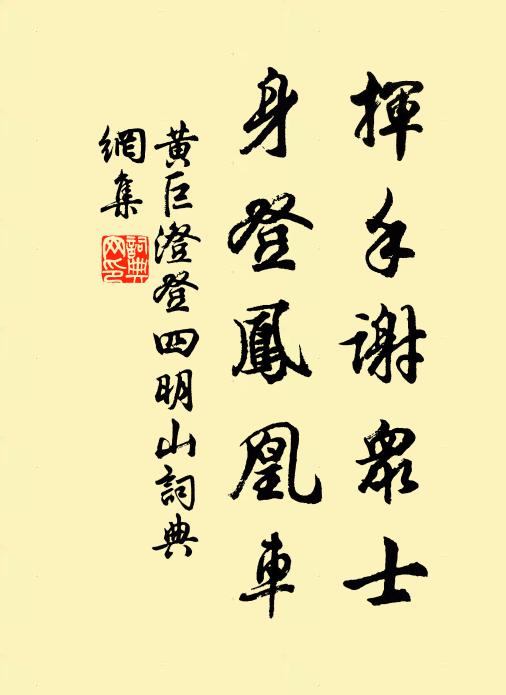 揮手謝眾士
身登鳳凰車
黃巨澄登四明山詞典
網集
詞典
网印